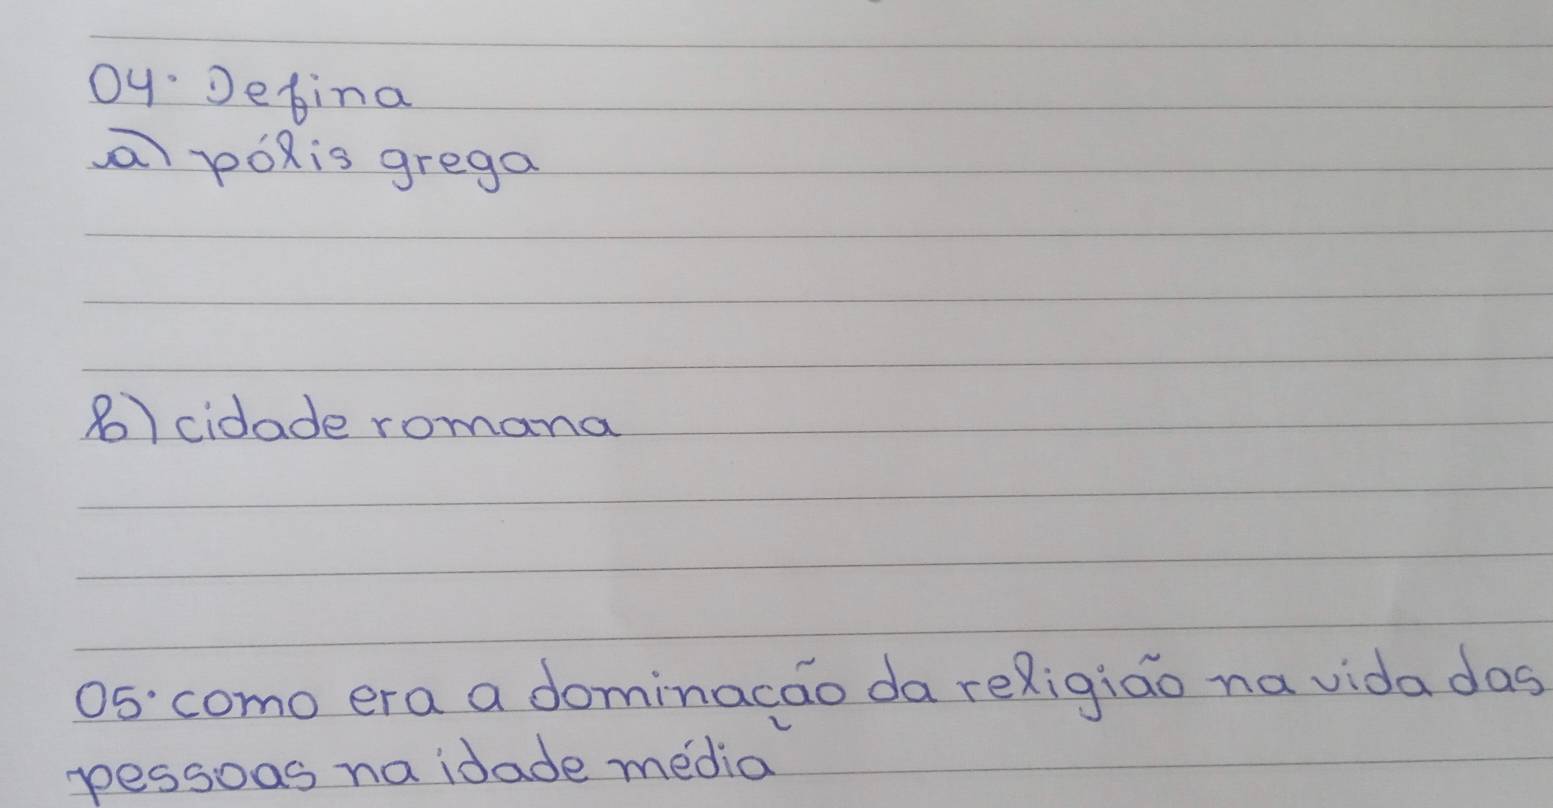 04. Defina
a) pólis grega
b) cidade romana
05. como era a dominação da religião na vida das
pessoas na idade média